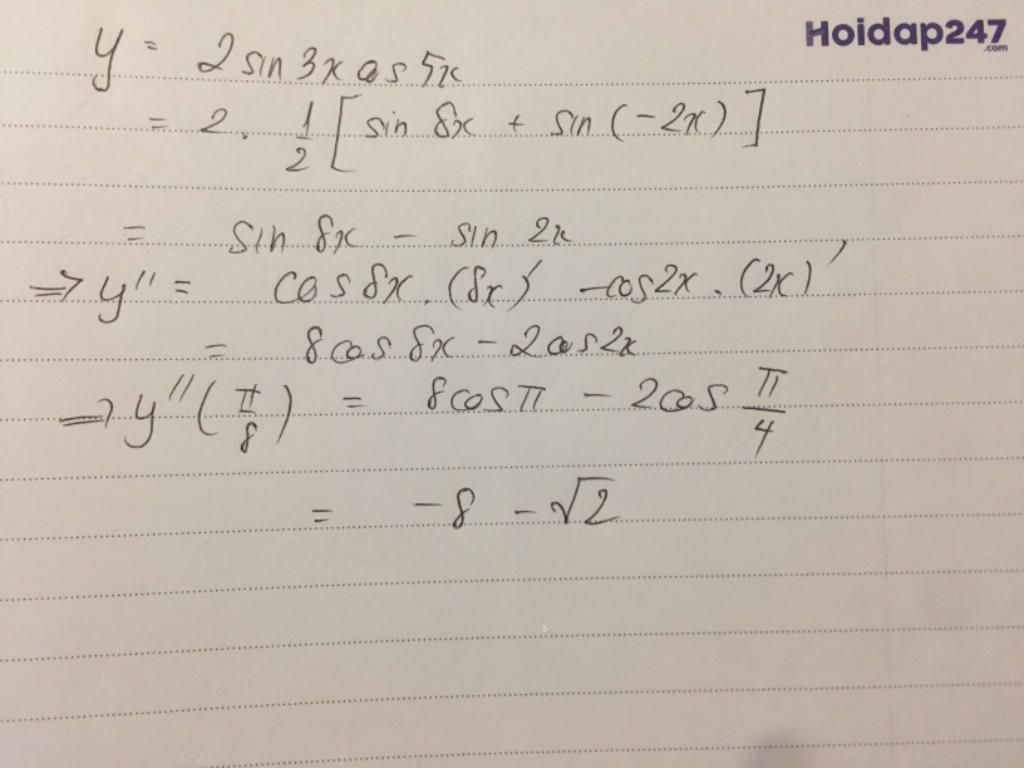 Hoidap247
.com
y = 2 sin 3x cos 5x
= 2 . 1/2 [ sin 8x + sin (-2x) ]
= sin 8x - sin 2x
=> y'' = cos 8x . (8x)' - cos2x . (2x)'
= 8cos 8x - 2cos2x
=> y'' (π/8) = 8cosπ - 2cos π/4
= -8 - √2